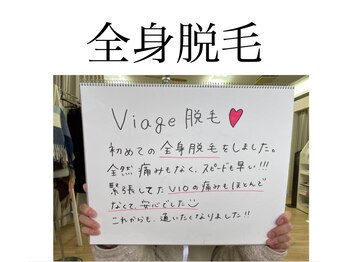 全身脱毛
Viage 脱毛
初めての全身脱毛をしました。
全然痛みもなく、スピードも早い!!!
緊張してたVIOの痛みもほとんど
なくて、安心でした
これからも、通いたくなりました!!